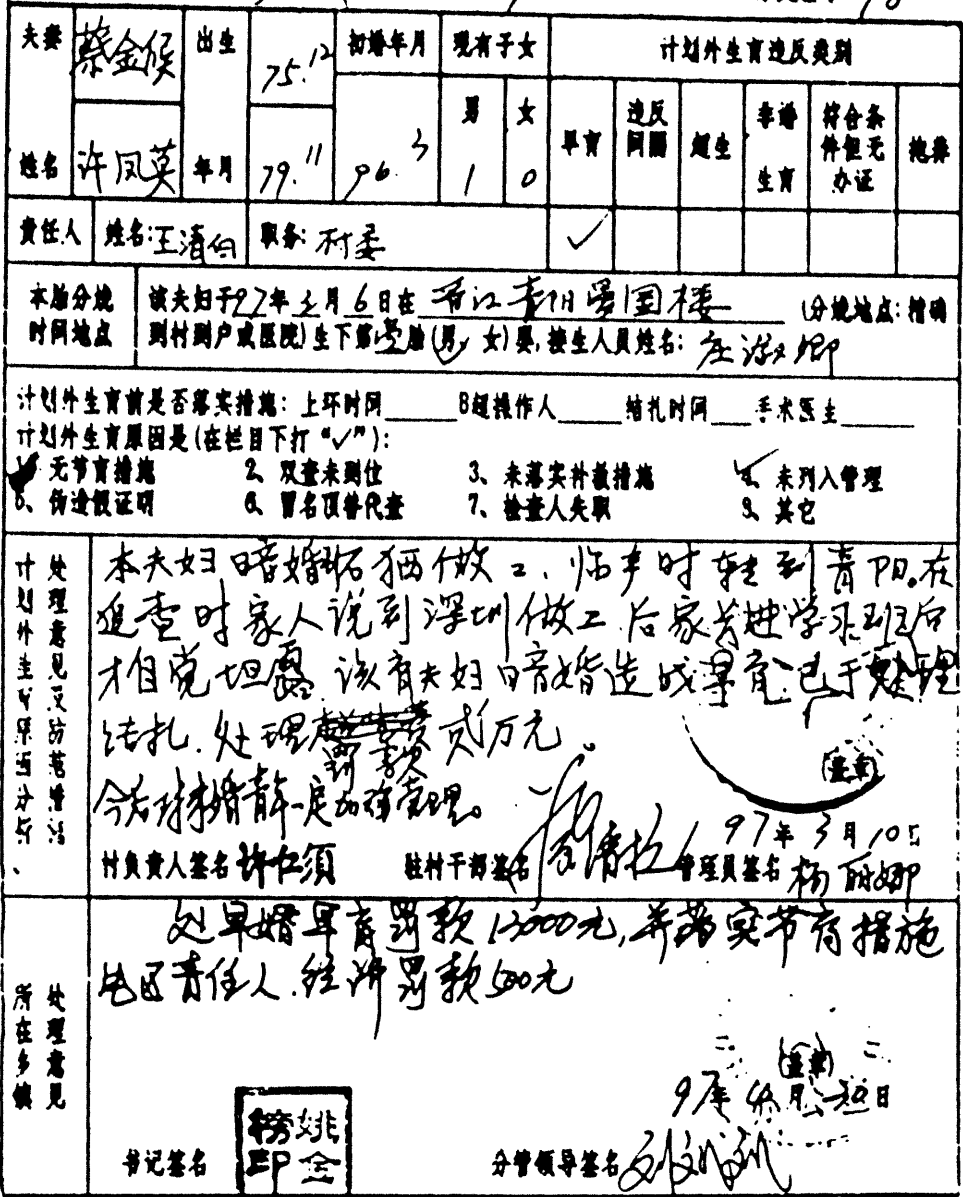 夫妻 蔡金候 出生 75.12 初婚年月 现有子女 计划外生育违反类别
男 女 早育 违反间隔 超生 非婚生育 符合条件但无办证 抱养
姓名 许凤英 年月 79.11 96.3 1 0
责任人 姓名:王清 职务:村委 ✓
本胎分娩 该夫妇于97年3月6日在 晋江青阳 国楼 (分娩地点:精确
时间地点 到村到户或医院)生下第壹胎(男,女)婴,接生人员姓名: 庄淑卿
计划外生育前是否落实措施:上环时间 B超操作人 结扎时间 手术医生
计划外生育原因是(在栏目下打“✓”):
1、无节育措施 2、双查未到位 3、未落实补救措施 4、未列入管理
5、伪造假证明 6、冒名顶替代查 7、检查人失职 9、其它
计划外生育原因分析、
处理意见及防范措施
本夫妇暗婚 石狮做工、临产时转到青阳。在
追查时家人说到深圳做工.后家 进学习班后
才自觉坦露.该 夫妇暗婚造成早育.已于 理
结扎.处理 罚款贰万元
今后对未婚青年一定加强管理。
(盖章)
97年3月10日
村负责人签名 许仁须 驻村干部签名 管理员签名 杨丽娜
所在乡镇
处理意见
处早婚早育罚款12000元,并落实节育措施
包区责任人.经济罚款500元
(盖章)
97年 月 日
书记签名 姚金榜印 分管领导签名